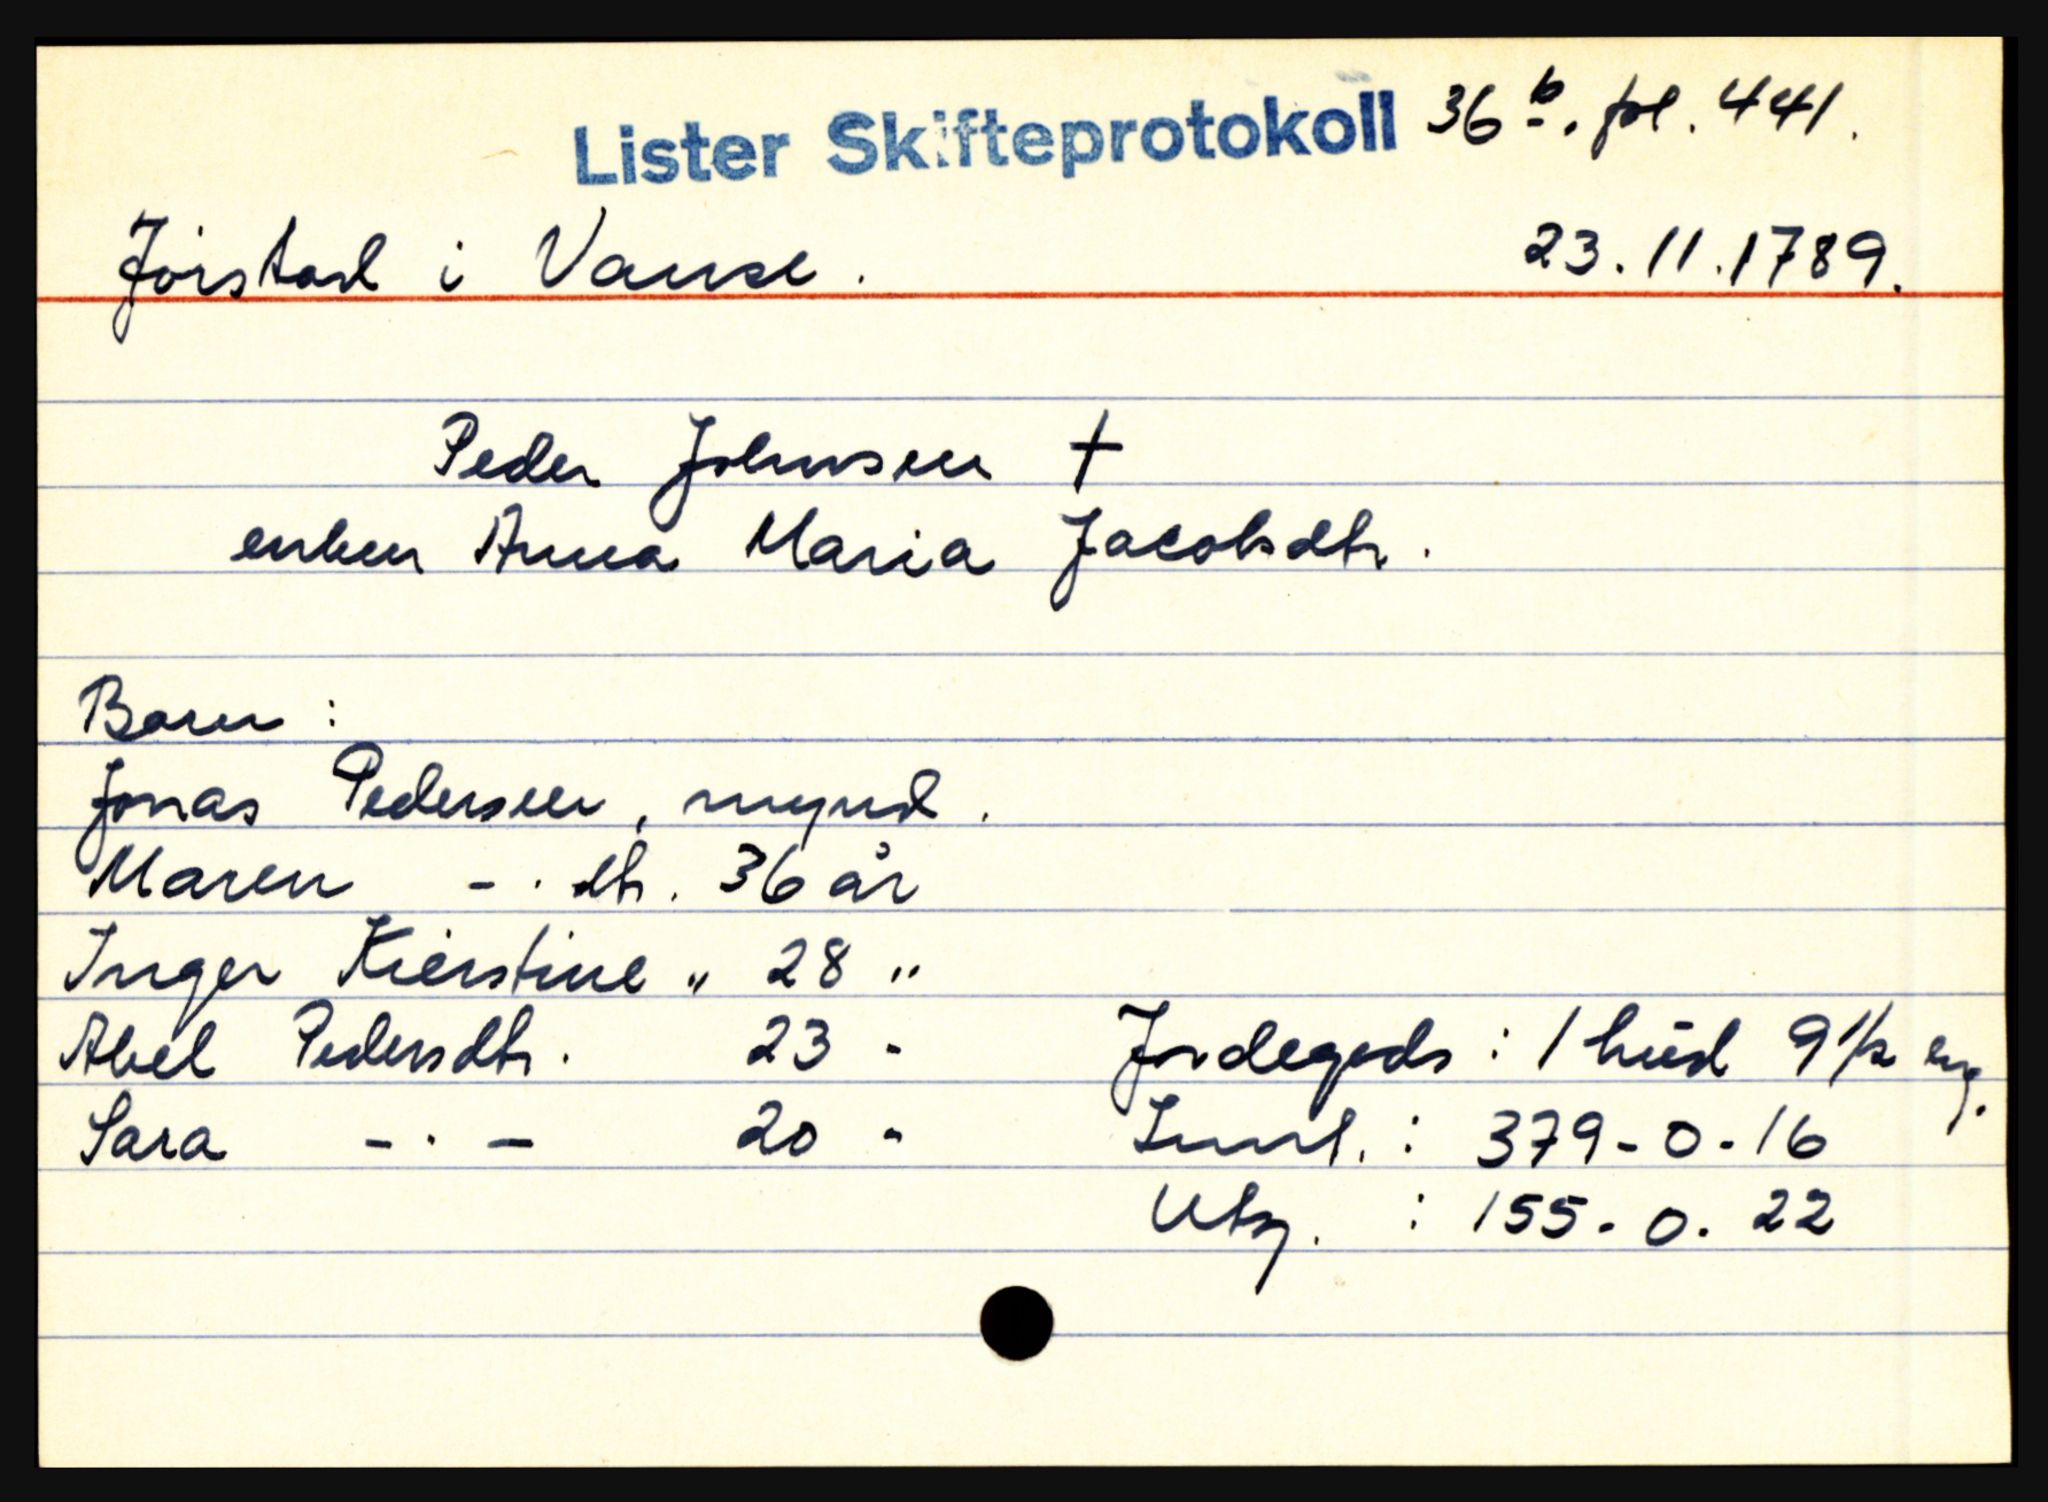 Lister Skifteprotokoll 36 b. fol. 441.
Jørstad i Vanse. 23.11.1789.
Peder Johnsen †
enken Anna Maria Jacobsdtr.
Barn:
Jonas Pedersen, mynd.
Maren -.dtr. 36 år
Inger Kierstine " 28 "
Abel Pedersdtr. 23 -
Sara -.- 20 -
Jordegods: 1 hud 9 1/2 eng.
Innt.: 379-0-16
Utg. : 155-0-22